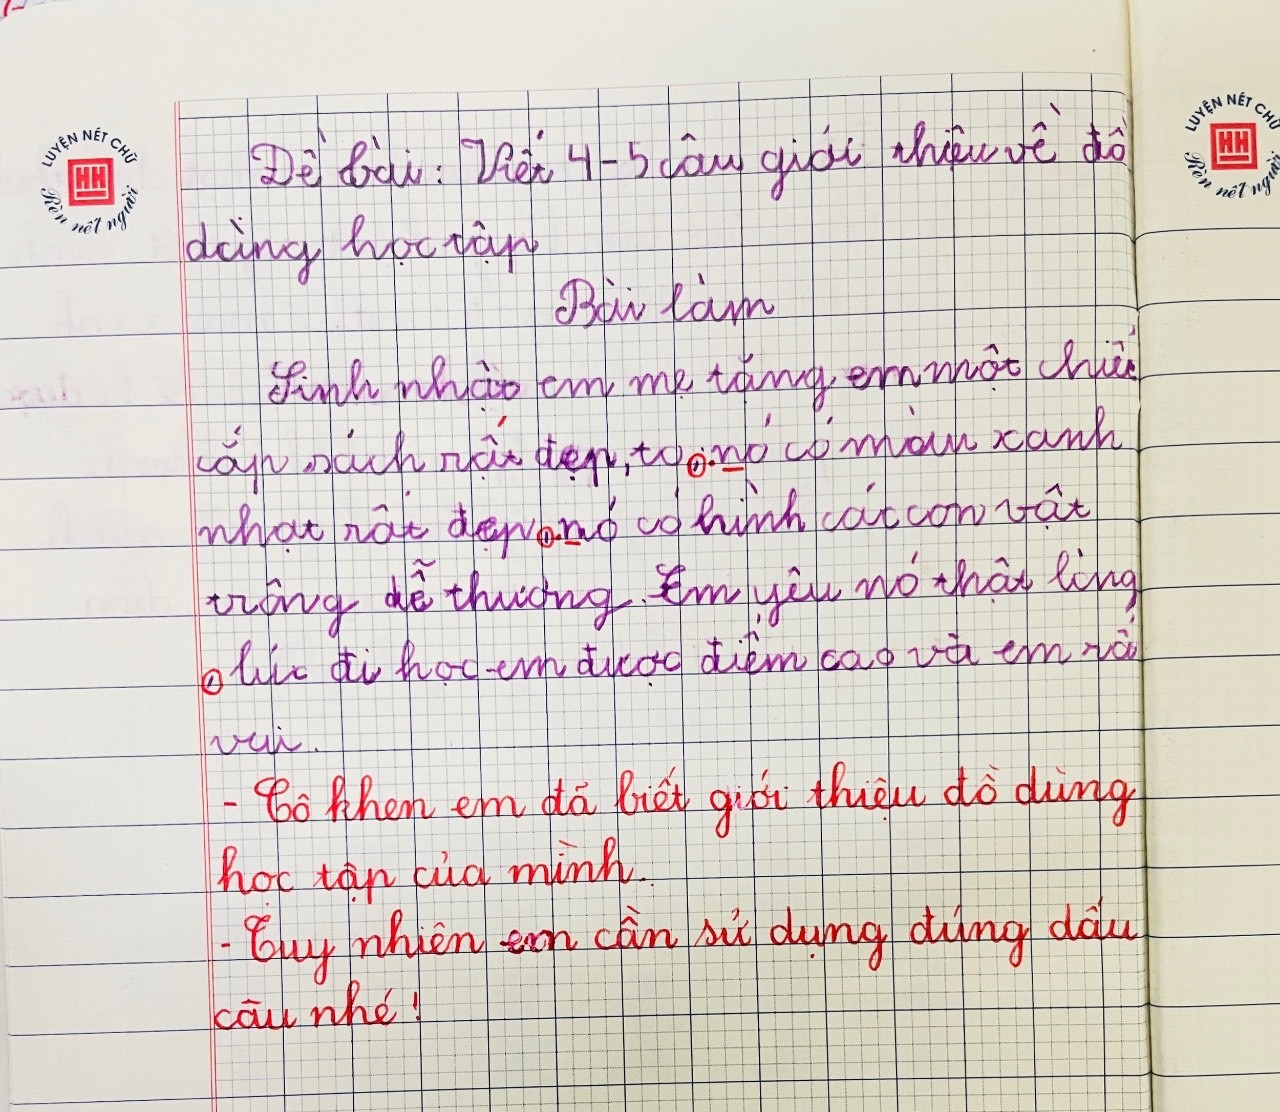 LUYỆN NÉT CHỮ
HH
Rèn nết người
LUYỆN NÉT CHỮ
HH
Rèn nết người
Đề bài: Viết 4-5 câu giới thiệu về đồ
dùng học tập
Bài làm
Sinh nhật em mẹ tặng em một chiếc
cắp sách rất đẹp, to. nó có màu xanh
nhạt rất đẹp. nó có hình các con vật
trông dễ thương. Em yêu nó thật lòng
lúc đi học em được điểm cao và em rấ
vui.
- Cô khen em đã biết giới thiệu đồ dùng
học tập của mình.
- Tuy nhiên em cần sử dụng đúng dấu
câu nhé!